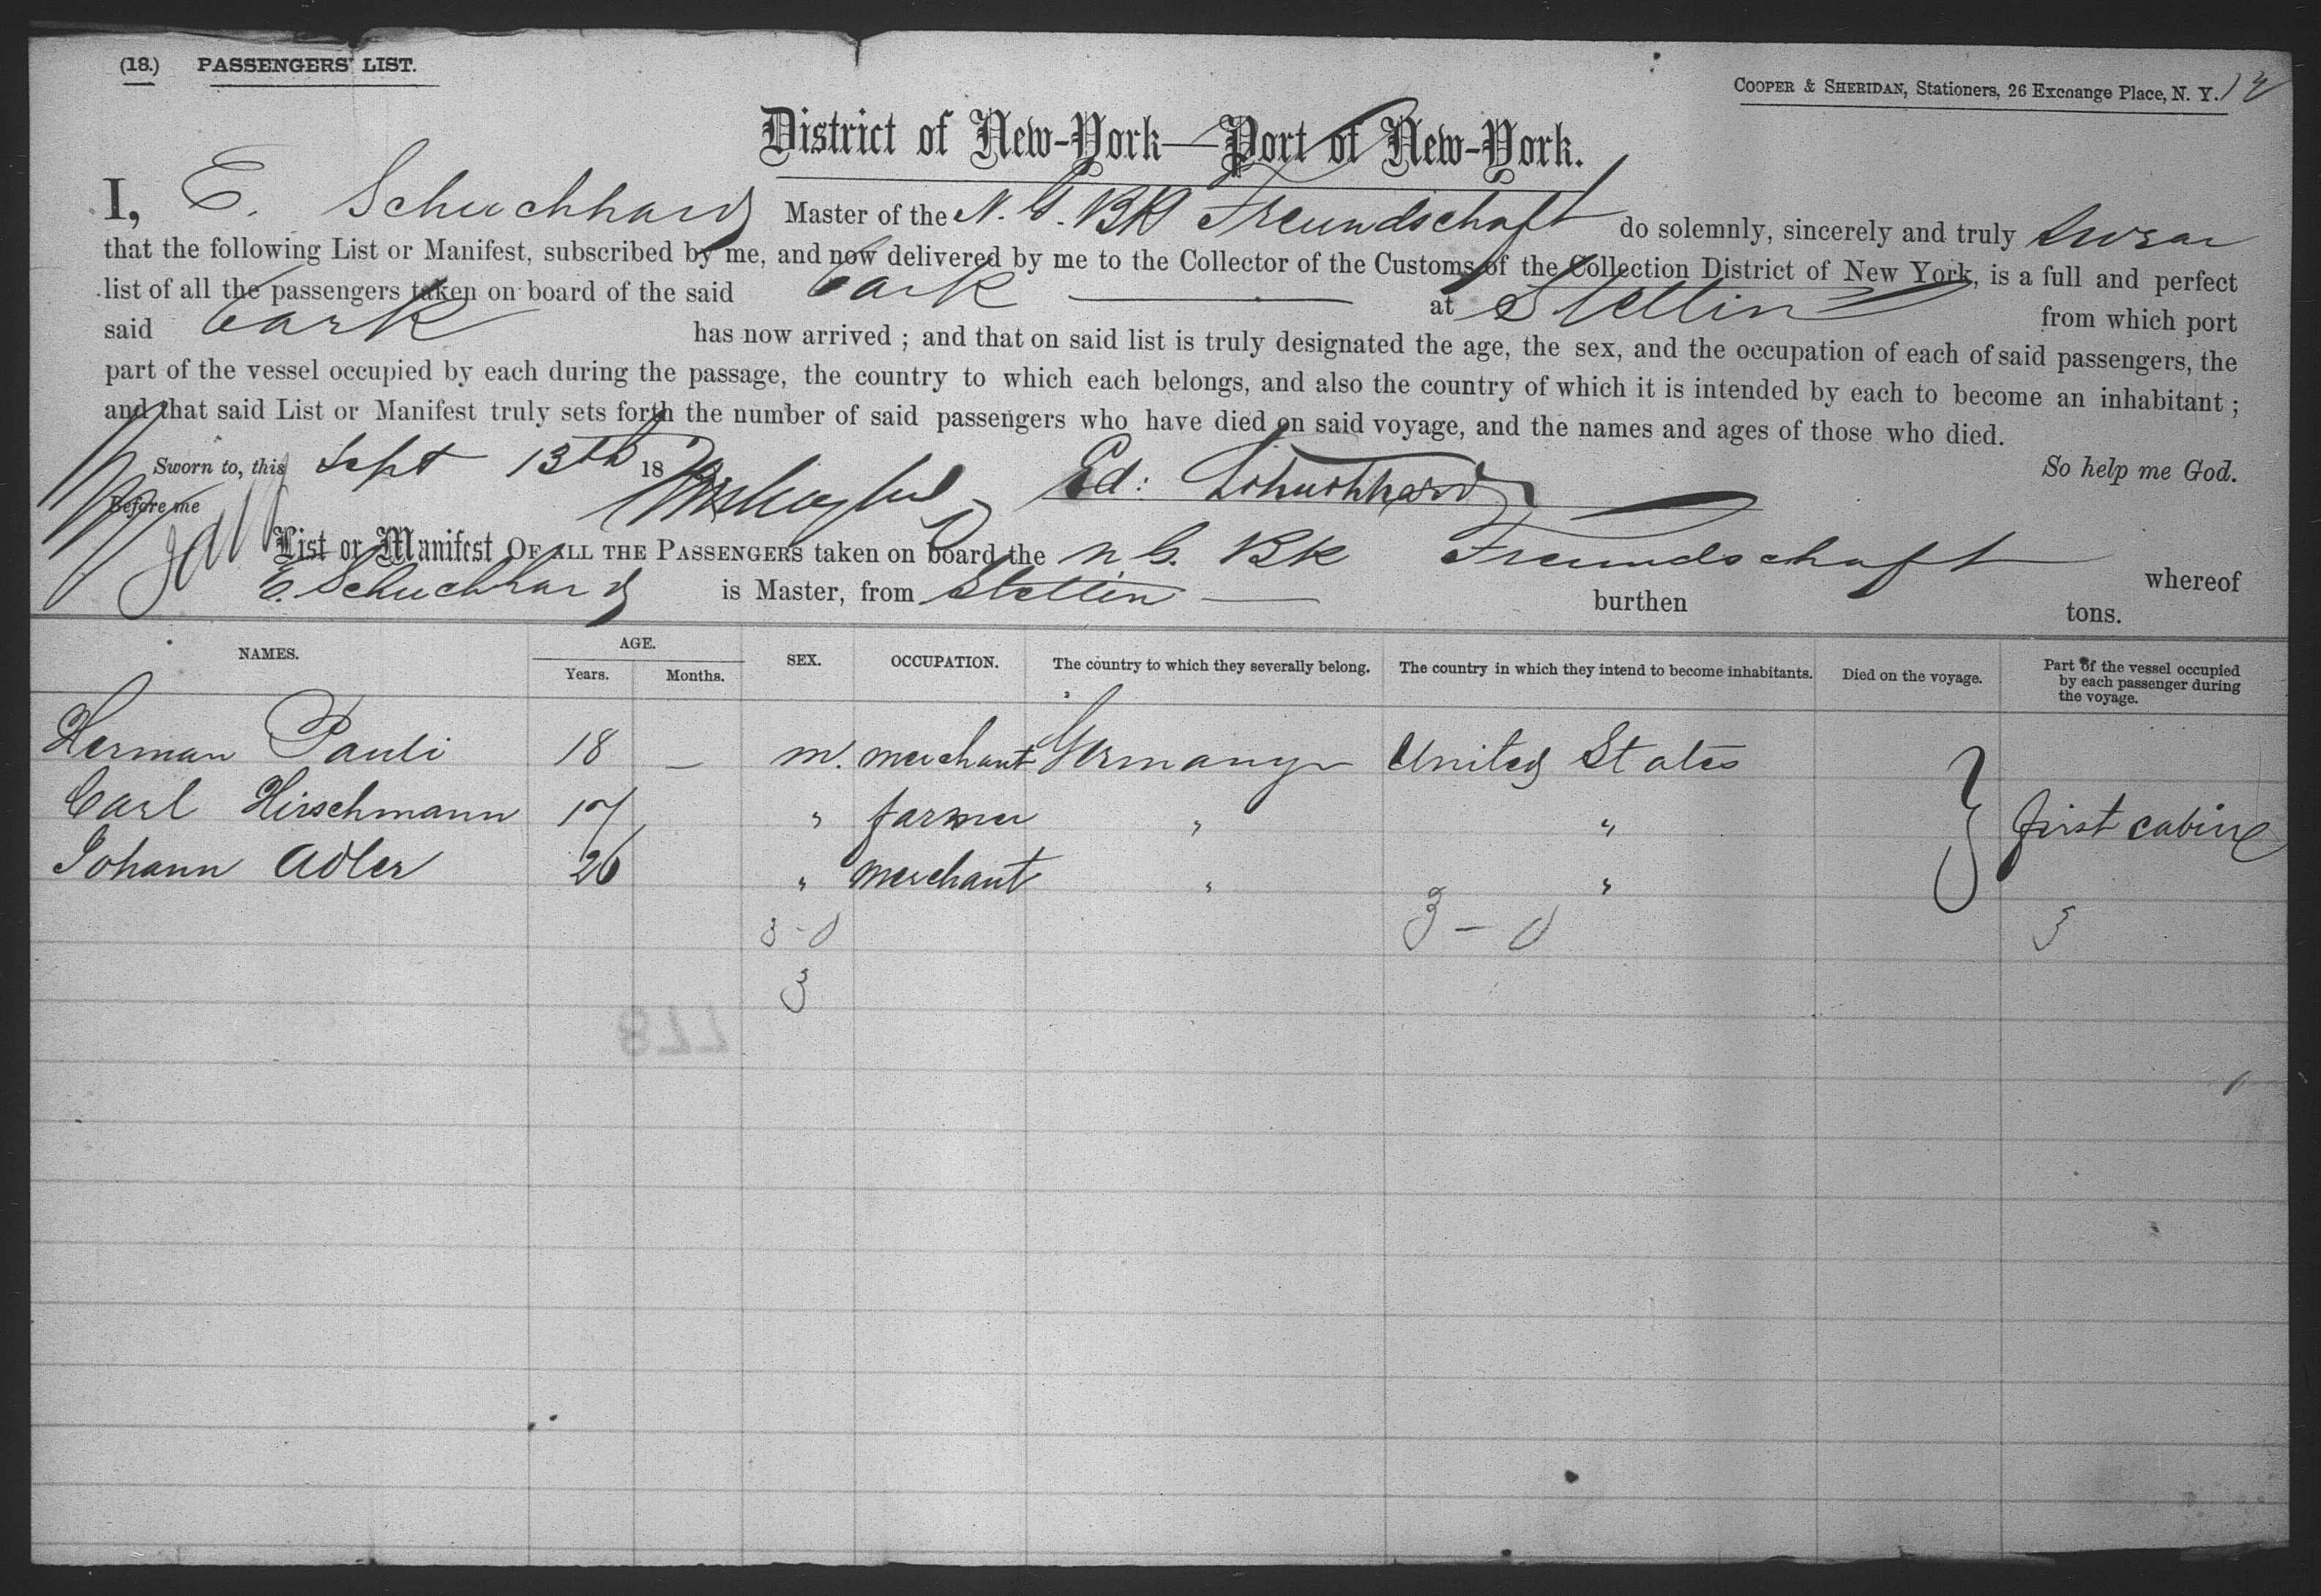 (18.) PASSENGERS' LIST.
COOPER & SHERIDAN, Stationers, 26 Exchange Place, N. Y.
District of New-York—Port of New-York.
I, E. Schuchhard Master of the N. G. BK Freundschaft do solemnly, sincerely and truly swear
that the following List or Manifest, subscribed by me, and now delivered by me to the Collector of the Customs of the Collection District of New York, is a full and perfect
list of all the passengers taken on board of the said bark at Stettin from which port
said bark has now arrived ; and that on said list is truly designated the age, the sex, and the occupation of each of said passengers, the
part of the vessel occupied by each during the passage, the country to which each belongs, and also the country of which it is intended by each to become an inhabitant ;
and that said List or Manifest truly sets forth the number of said passengers who have died on said voyage, and the names and ages of those who died.
So help me God.
Sworn to, this Sept 13th 18
Ed: Schuchhard
Before me
List or Manifest OF ALL THE PASSENGERS taken on board the N. G. BK Freundschaft whereof
E. Schuchhard is Master, from Stettin — burthen tons.
NAMES. AGE. Years. Months. SEX. OCCUPATION. The country to which they severally belong. The country in which they intend to become inhabitants. Died on the voyage. Part of the vessel occupied by each passenger during the voyage.
Herman Pauli 18 — m. merchant Germany United States
Carl Hirschmann 17 " farmer " " } first cabin
Johann Adler 26 " merchant " "
3-0 3-0 3
3
877